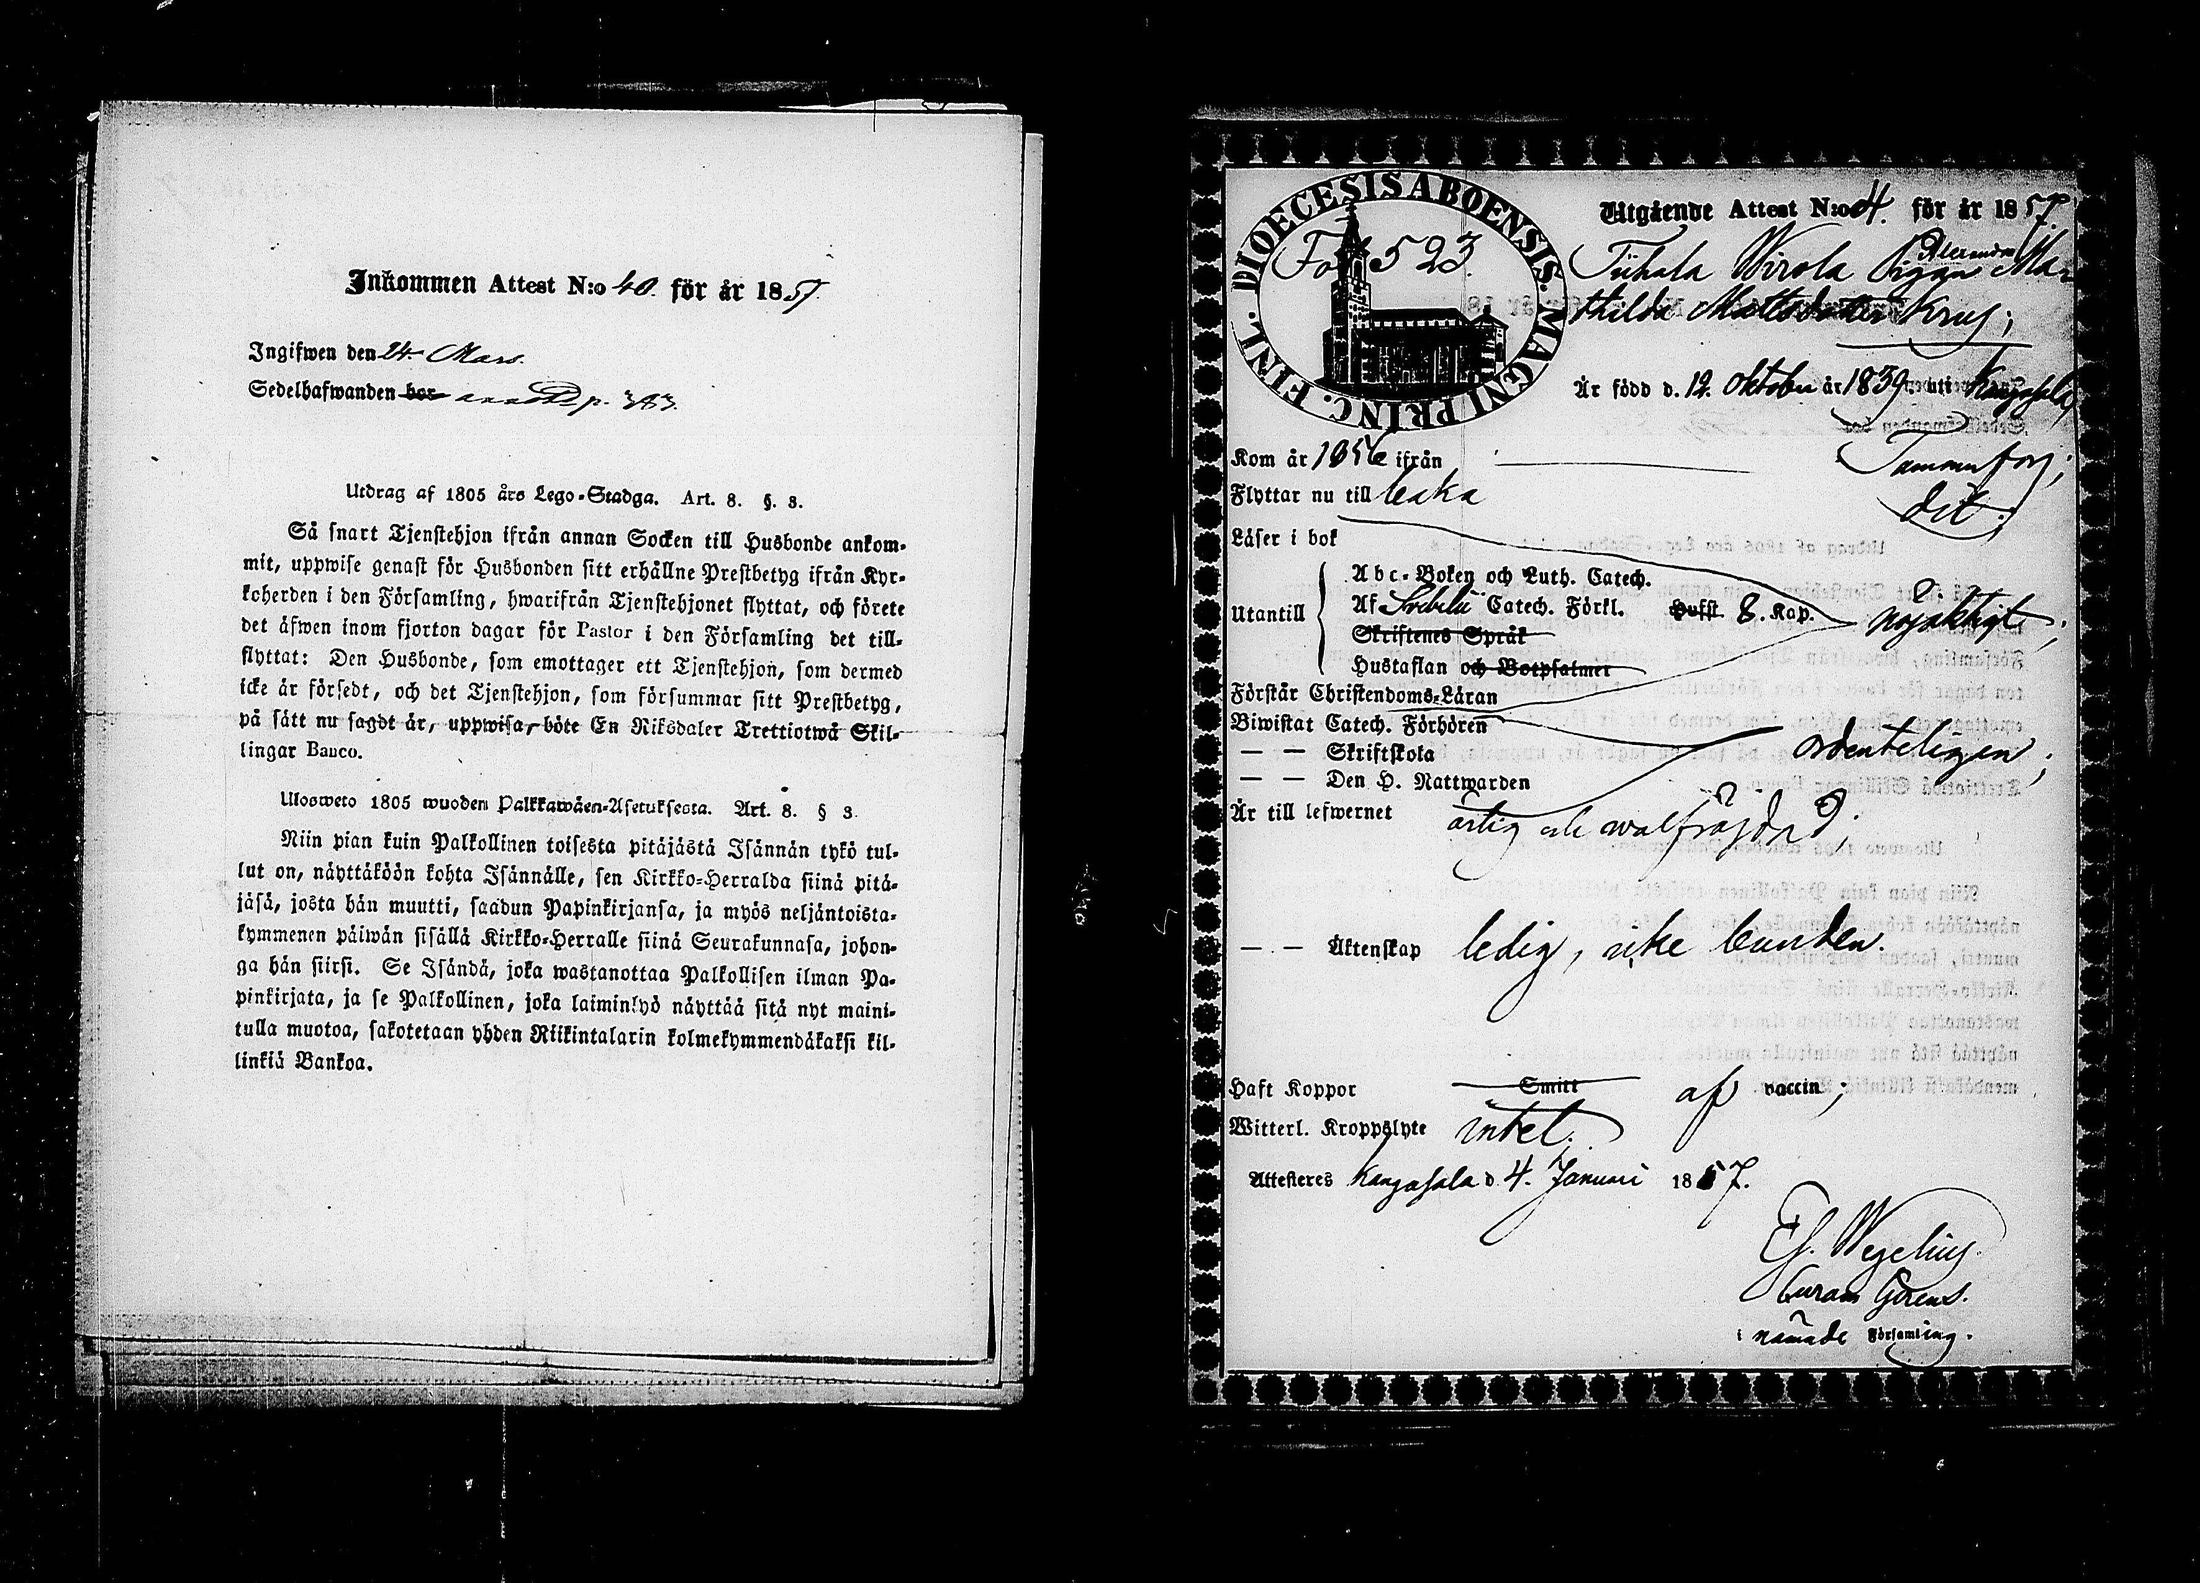 Inkommen Attest N:o 40. för år 1857.
Ingifwen den 24 Mars.
Sedelhafwanden bor annotd p. 383.
Utdrag af 1805 års Lego-Stadga. Art. 8. §. 3.
Så snart Tjenstehjon ifrån annan Socken till Husbonde ankom-
mit, uppwise genast för Husbonden sitt erhållne Prestbetyg ifrån Kyr-
koherden i den Församling, hwarifrån Tjenstehjonet flyttat, och förete
det äfwen inom fjorton dagar för Pastor i den Församling det till-
flyttat: Den Husbonde, som emottager ett Tjenstehjon, som dermed
icke är försedt, och det Tjenstehjon, som försummar sitt Prestbetyg,
på sätt nu sagdt är, uppwisa, böte En Riksdaler Trettiotwå Skil-
lingar Banco.
Ulosweto 1805 wuoden Palkkawäen-Asetuksesta. Art. 8. § 3.
Niin pian kuin Palkollinen toisesta pitäjästä Isännän tykö tul-
lut on, näyttäköön kohta Isännälle, sen Kirkko-Herralda siinä pitä-
jäsä, josta hän muutti, saadun Papinkirjansa, ja myös neljäntoista-
kymmenen päiwän sisällä Kirkko-Herralle siinä Seurakunnasa, johon-
ga hän siirsi. Se Isändä, joka wastanottaa Palkollisen ilman Pa-
pinkirjata, ja se Palkollinen, joka laiminlyö näyttää sitä nyt maini-
tulla muotoa, sakotetaan yhden Riikintalarin kolmekymmendäkaksi kil-
linkiä Bankoa.
DIOECESIS ABOENSIS. MAGNI PRINC. FINL.
Fol 523.
Utgående Attest N:o 4. för år 1857.
Tiihala Wirola Pigan Alexandra Ma-
thilda Mattsdotter Krus;
Är född d. 12. Oktober år 1839 uti Kangasala,
Kom år 1856 ifrån Tammerfors;
Flyttar nu till baka dit;
Läser i bok
Abc-Boken och Luth. Catech.
Utantill Af Svebelii Catech. Förkl. Hufst 8. Kap. nöjaktigt;
Skriftenes Språk
Hustaflan och Botpsalmer
Förstår Christendoms-Läran
Biwistat Catech. Förhören
— — Skriftskola ordenteligen;
— — Den H. Nattwarden
Är till lefwernet ärlig och wälfräjdad;
— — Äktenskap ledig, icke bunden.
Haft Koppor Smitt af vaccin;
Witterl. Kroppslyte intet.
Attesteres Kangasala d. 4. Januari 1857.
Wegelius.
Curam Gerens.
i nämde Församling.